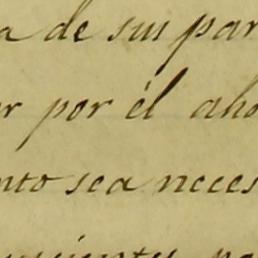 a de sus par
r por él aho
nto sea neces